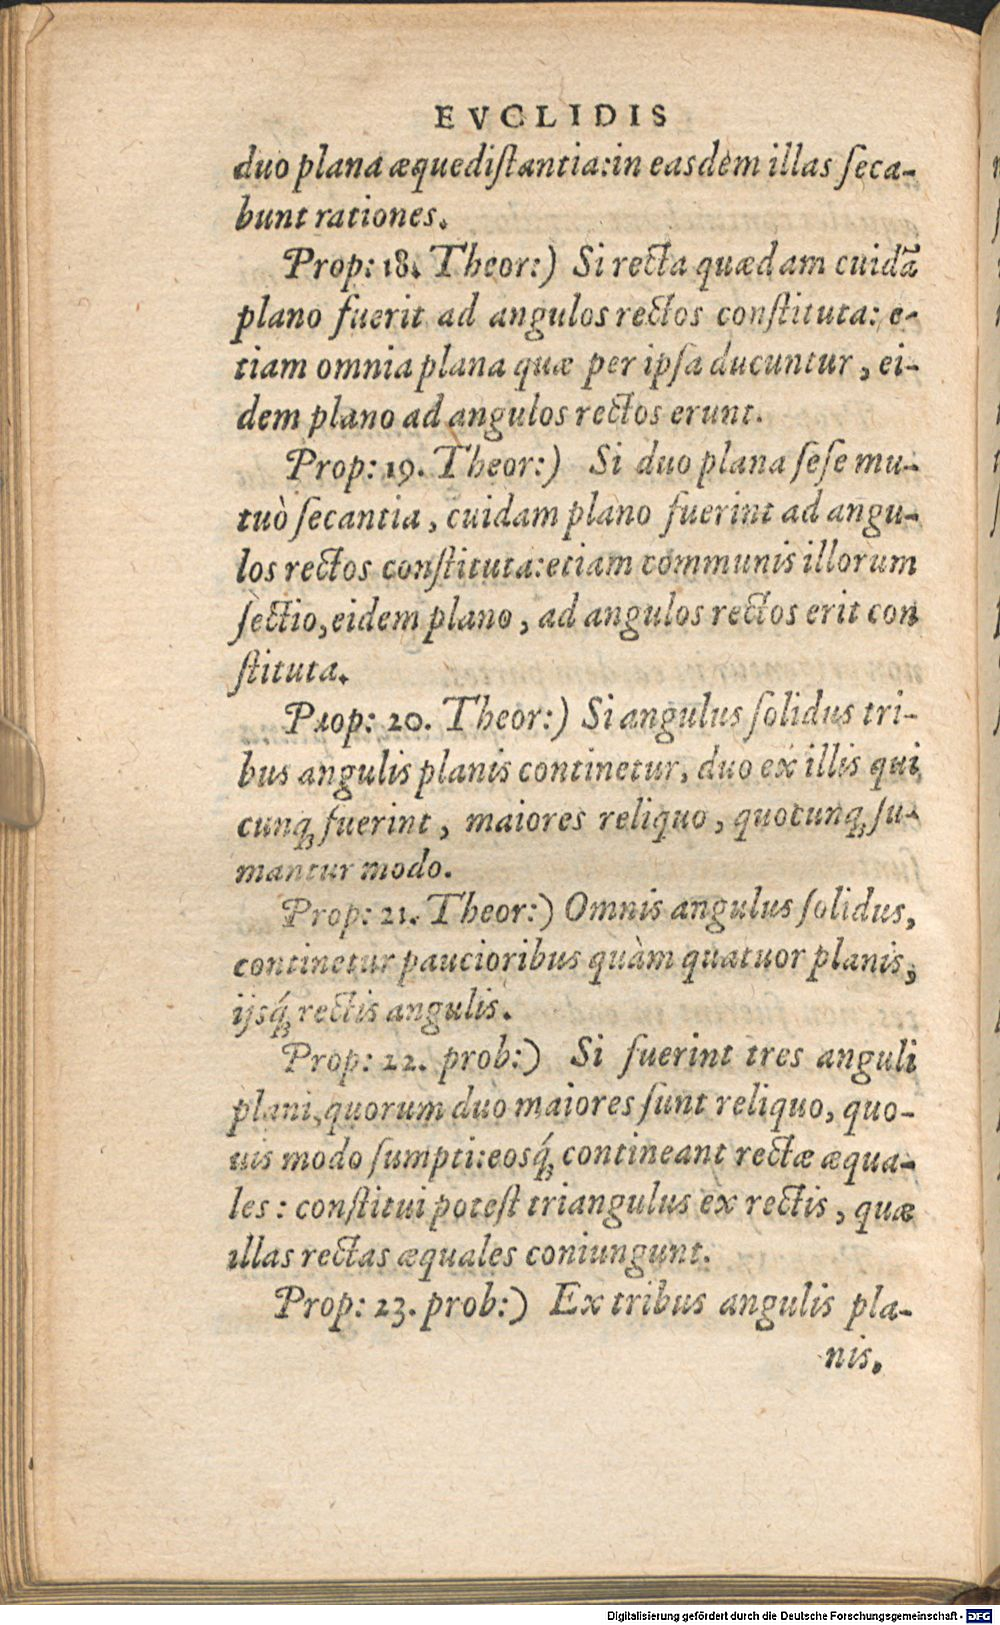 EVCLIDIS
duo plana æquedistantia:in easdem illas seca-
bunt rationes.
Prop: 18. Theor:) Si recta quædam cuidã
plano fuerit ad angulos rectos constituta: e-
tiam omnia plana quæ per ipsa ducuntur, ei-
dem plano ad angulos rectos erunt.
Prop: 19. Theor:) Si duo plana sese mu-
tuò secantia, cuidam plano fuerint ad angu-
los rectos constituta:etiam communis illorum
sectio, eidem plano, ad angulos rectos erit con
stituta.
Prop: 20. Theor:) Si angulus solidus tri-
bus angulis planis continetur, duo ex illis qui
cunq; fuerint, maiores reliquo, quocunq; su-
mantur modo.
Prop: 21. Theor:) Omnis angulus solidus,
continetur paucioribus quàm quatuor planis,
ijsq́; rectis angulis.
Prop: 22. prob:) Si fuerint tres anguli
plani, quorum duo maiores sunt reliquo, quo-
uis modo sumpti:eosq́; contineant rectæ æqua-
les: constitui potest triangulus ex rectis, quæ
illas rectas æquales coniungunt.
Prop: 23. prob:) Ex tribus angulis pla-
nis.
Digitalisierung gefördert durch die Deutsche Forschungsgemeinschaft - DFG